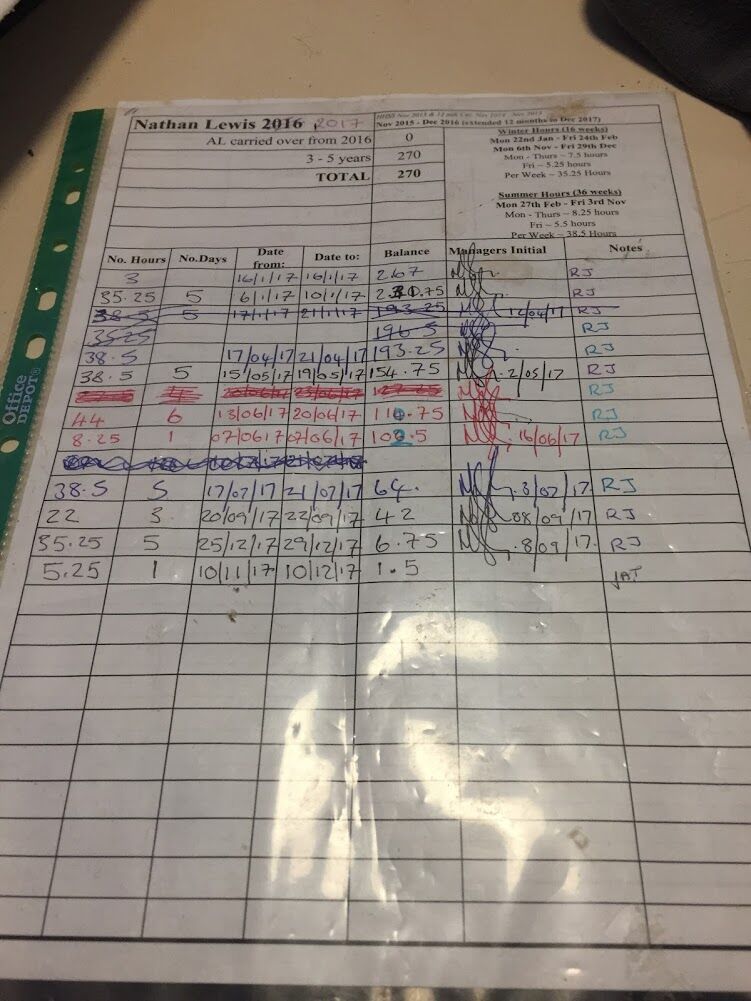 Nathan Lewis 2016 2017
Nov 2015 - Dec 2016 (extended 12 months to Dec 2017)
AL carried over from 2016 0
3 - 5 years 270
TOTAL 270
Winter Hours (16 weeks)
Mon 22nd Jan - Fri 24th Feb
Mon 6th Nov - Fri 29th Dec
Mon - Thurs ~ 7.5 hours
Fri ~ 5.25 hours
Per Week ~ 35.25 Hours
Summer Hours (36 weeks)
Mon 27th Feb - Fri 3rd Nov
Mon - Thurs ~ 8.25 hours
Fri ~ 5.5 hours
Per Week ~ 38.5 Hours
No. Hours No.Days Date from: Date to: Balance Managers Initial Notes
3 16/1/17 16/1/17 267 RJ
35.25 5 6/1/17 10/1/17 231.75 RJ
38.5 5 17/1/17 21/1/17 193.25 12/04/17 RJ
35.25 196.5 RJ
38.5 17/04/17 21/04/17 193.25 RJ
38.5 5 15/05/17 19/05/17 154.75 2/05/17 RJ
4 20/06/17 23/06/17 127.25 RJ
44 6 13/06/17 20/06/17 110.75 RJ
8.25 1 07/06/17 07/06/17 102.5 16/06/17 RJ
38.5 5 17/07/17 21/07/17 64. 3/07/17. RJ
22 3 20/09/17 22/09/17 42 08/09/17 RJ
35.25 5 25/12/17 29/12/17 6.75 8/09/17. RJ
5.25 1 10/11/17 10/12/17 1.5 JAT
Office DEPOT®